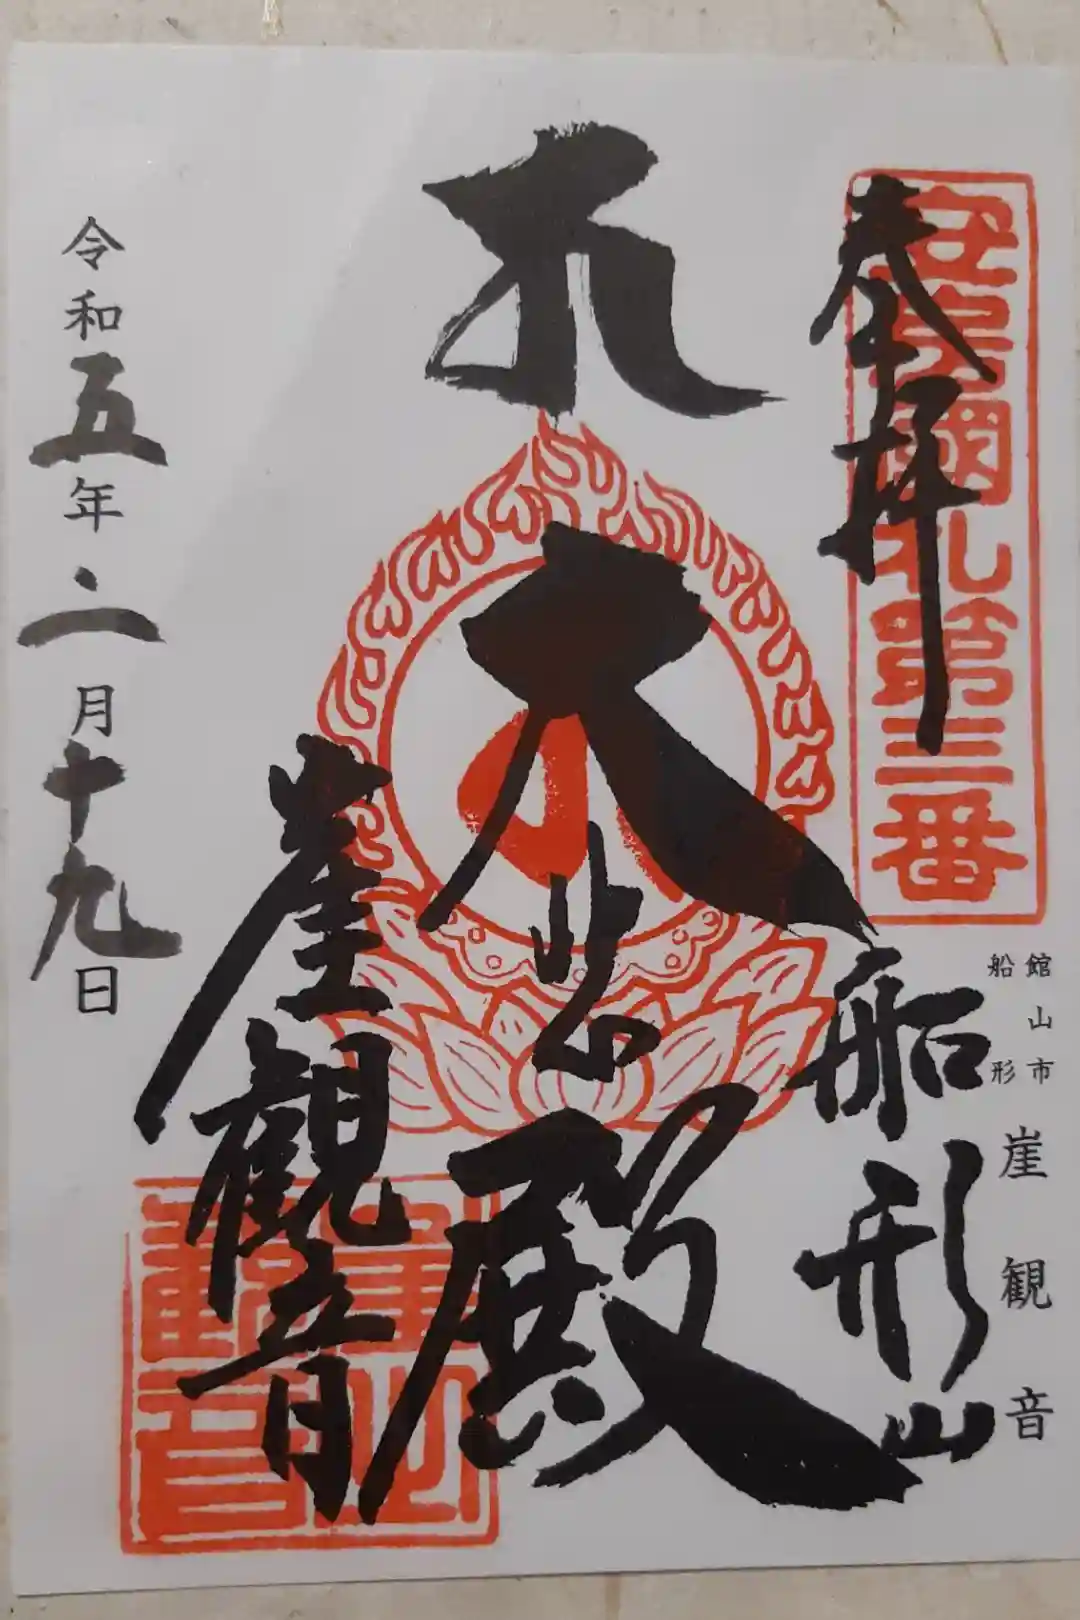 奉拝
安房國札第三番
館山市
船形
崖観音
船形山
大悲殿
崖觀音
令和五年二月十九日